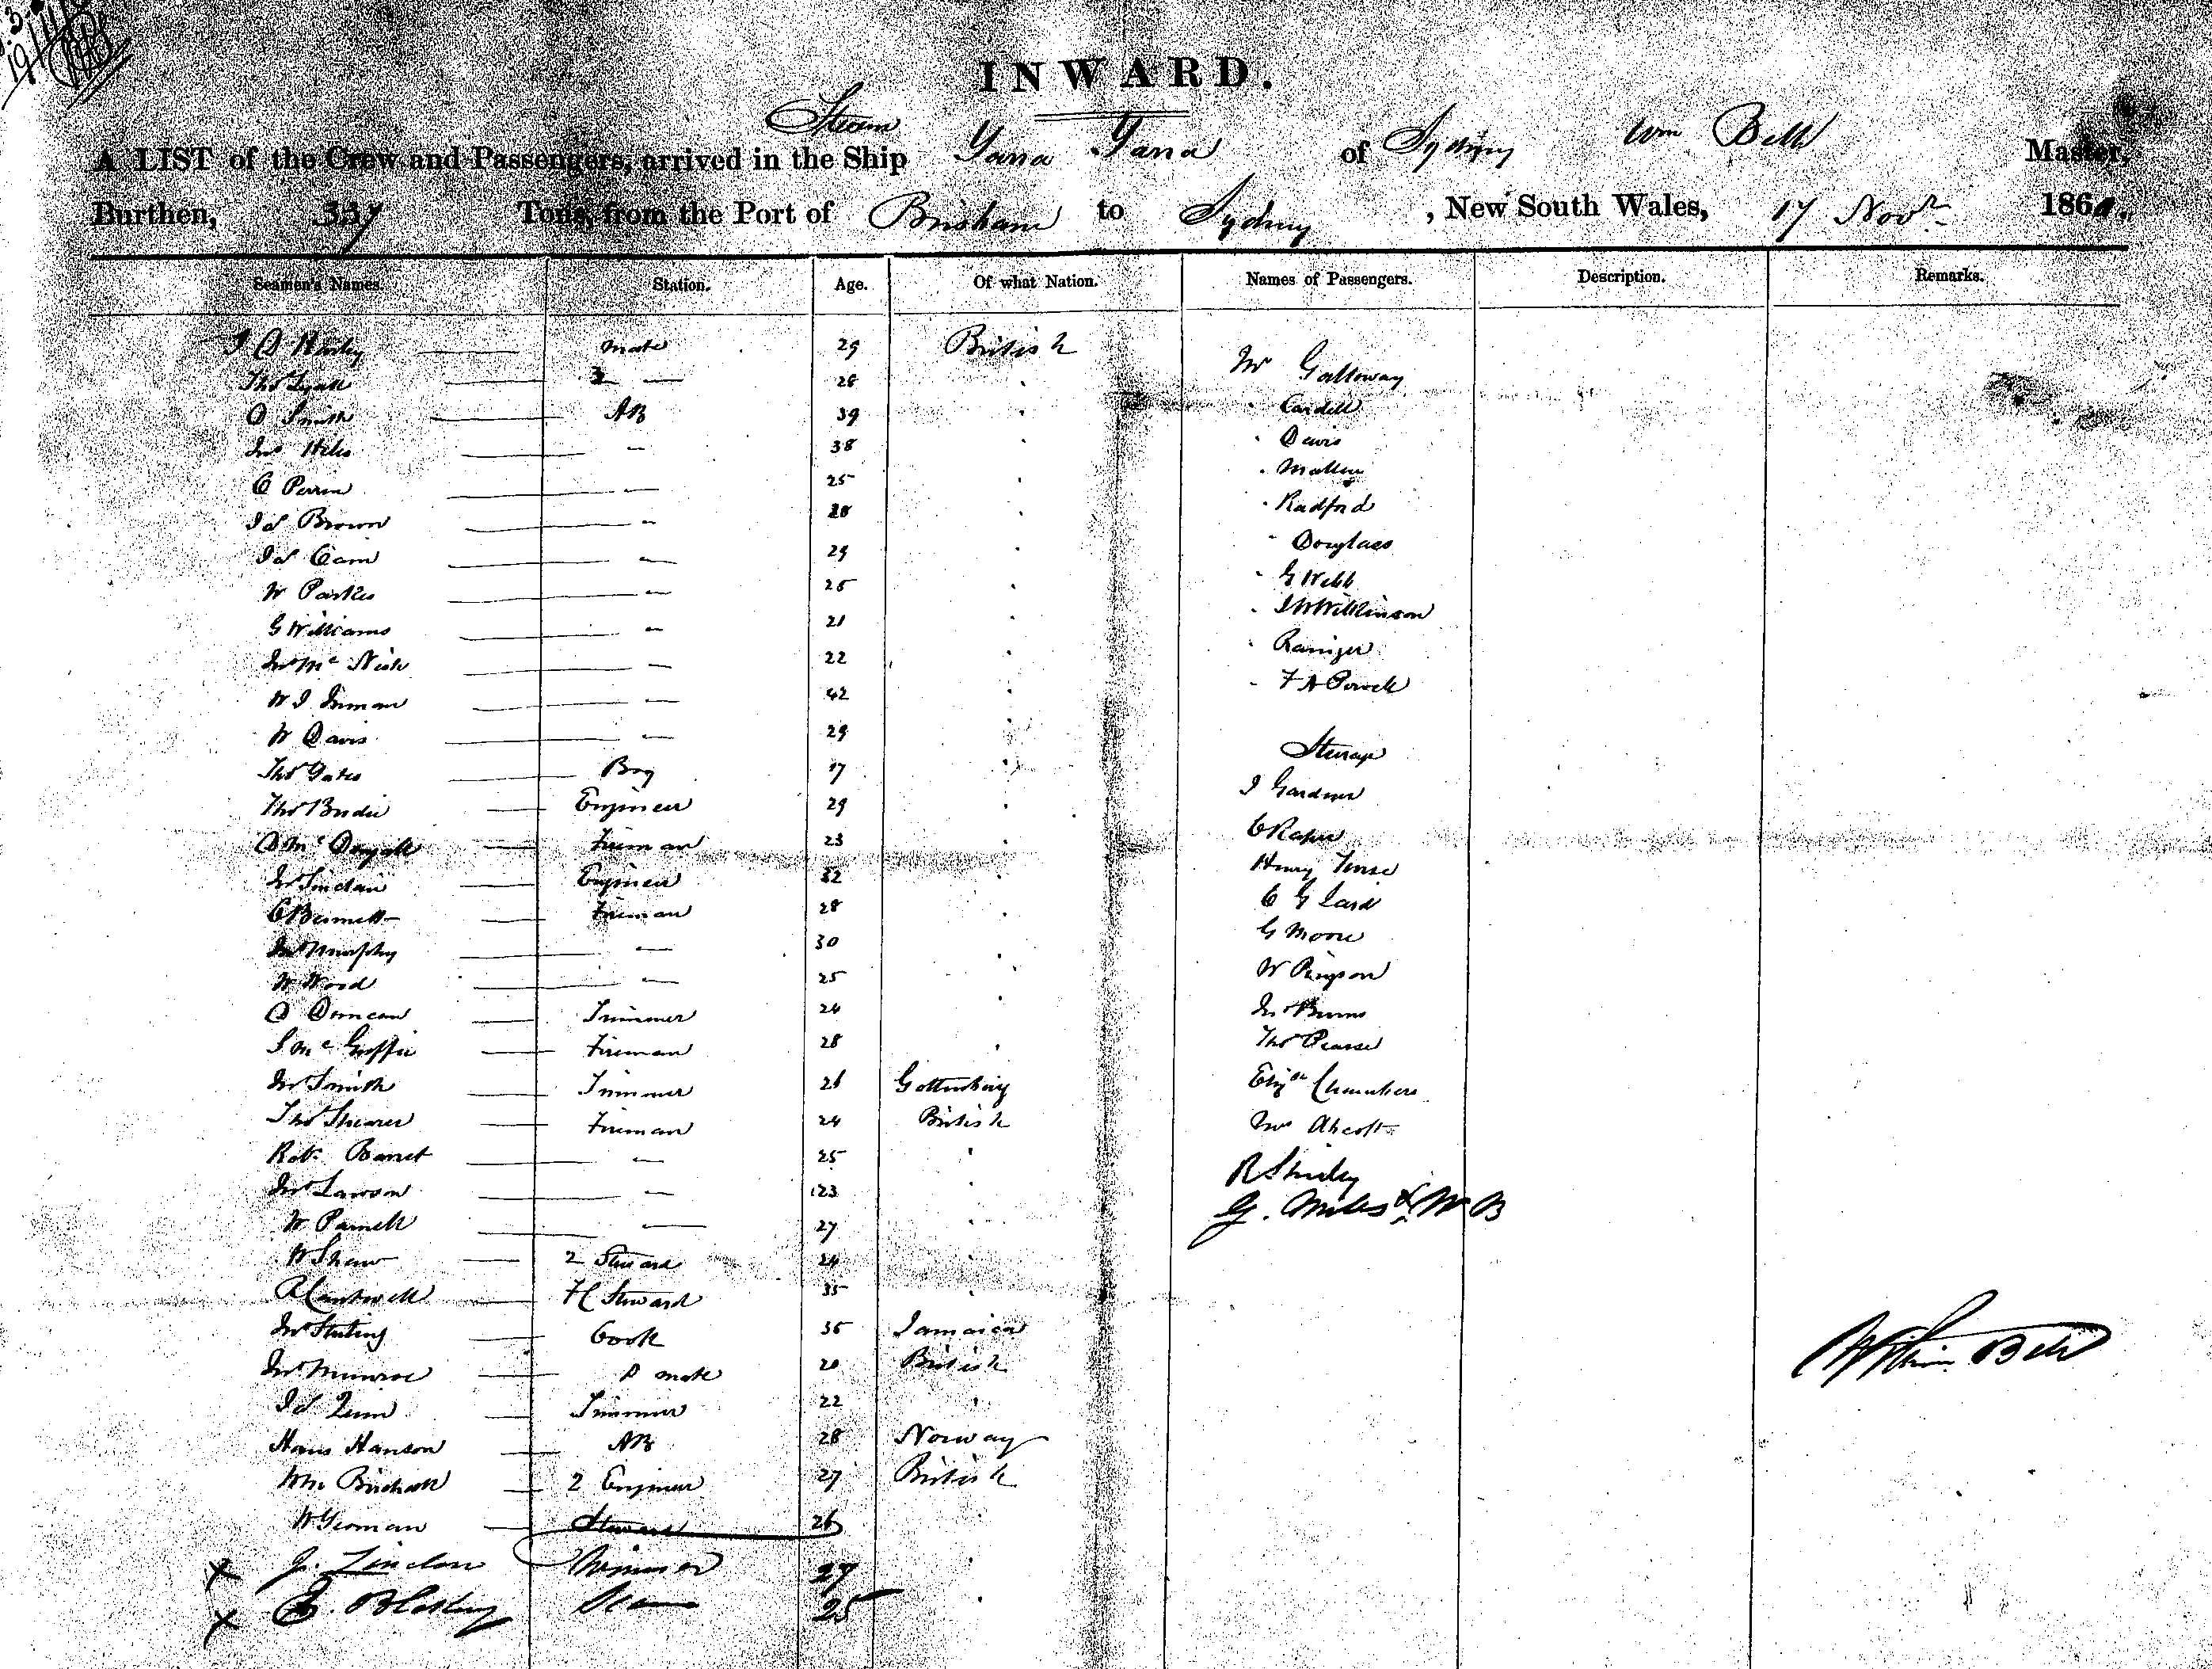 INWARD.
Steam
A LIST of the Crew and Passengers, arrived in the Ship Yarra Yarra of Sydney Wm Bell Master,
Burthen, 337 Tons, from the Port of Brisbane to Sydney, New South Wales, 17 Novr 186
Seamen's Names. Station. Age. Of what Nation. Names of Passengers. Description. Remarks.
mate 29 British Mr Galloway
Thos Lyall 2 — 28 " " Cardell
D Smith AB 39 " " Davis
Jno — 38 "
C Perrin — 25 " " Radford
Jas Brown — 28 " " Douglass
Jas Cam — 29 " " G Webb
W Parkes — 25 " " J W Wilkinson
G Williams — 21 "
Jno Mc Nish — 22 " " F A Powell
W J Inman — 42 "
W Davis — 29 " Steerage
Thos Yates Boy 17 " J Gardner
Thos Brodie Engineer 29 " C Raper
D Mc Dougall Fireman 23 " Henry
Jno Sinclair Engineer 32 " C G Laird
C Bennett Fireman 28 " G Moore
Jno Murphy — 30 " W
W Wood — 25 " Jno Burns
D Duncan Trimmer 24 " Thos Pearse
J Mc Guffie Fireman 28 " Elizth Chambers
Jno Smith Trimmer 26 Gottenburg Mrs
Thos Shearer Fireman 24 British R Shirley
Robt Barret — 25 " G. Miles & W B
Jno Lawson — 23 "
W Parnell — 27 "
W Shaw 2 Steward 24 "
R Cantwell F C Steward 35 "
Jno Stirling Cook 35 Jamaica
Jno Munroe mate 20 British
Jas Quin Trimmer 22 "
Hans Hanson AB 28 Norway
Wm Birchall 2 Engineer 27 British
W Yeoman Steward 26
x J. Linden Trimmer 27 "
x E. 25 "
William Bell